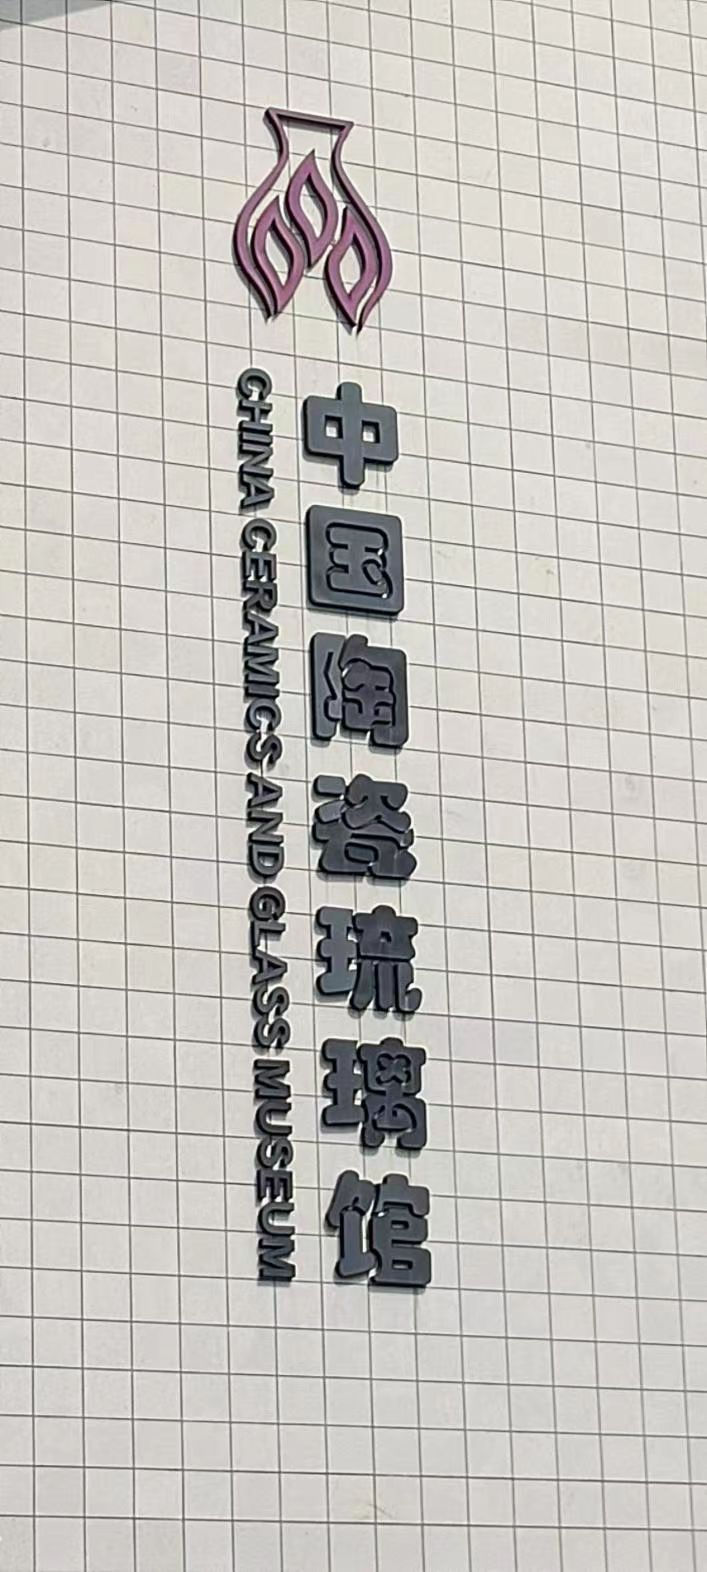 中国陶瓷琉璃馆
CHINA CERAMICS AND GLASS MUSEUM